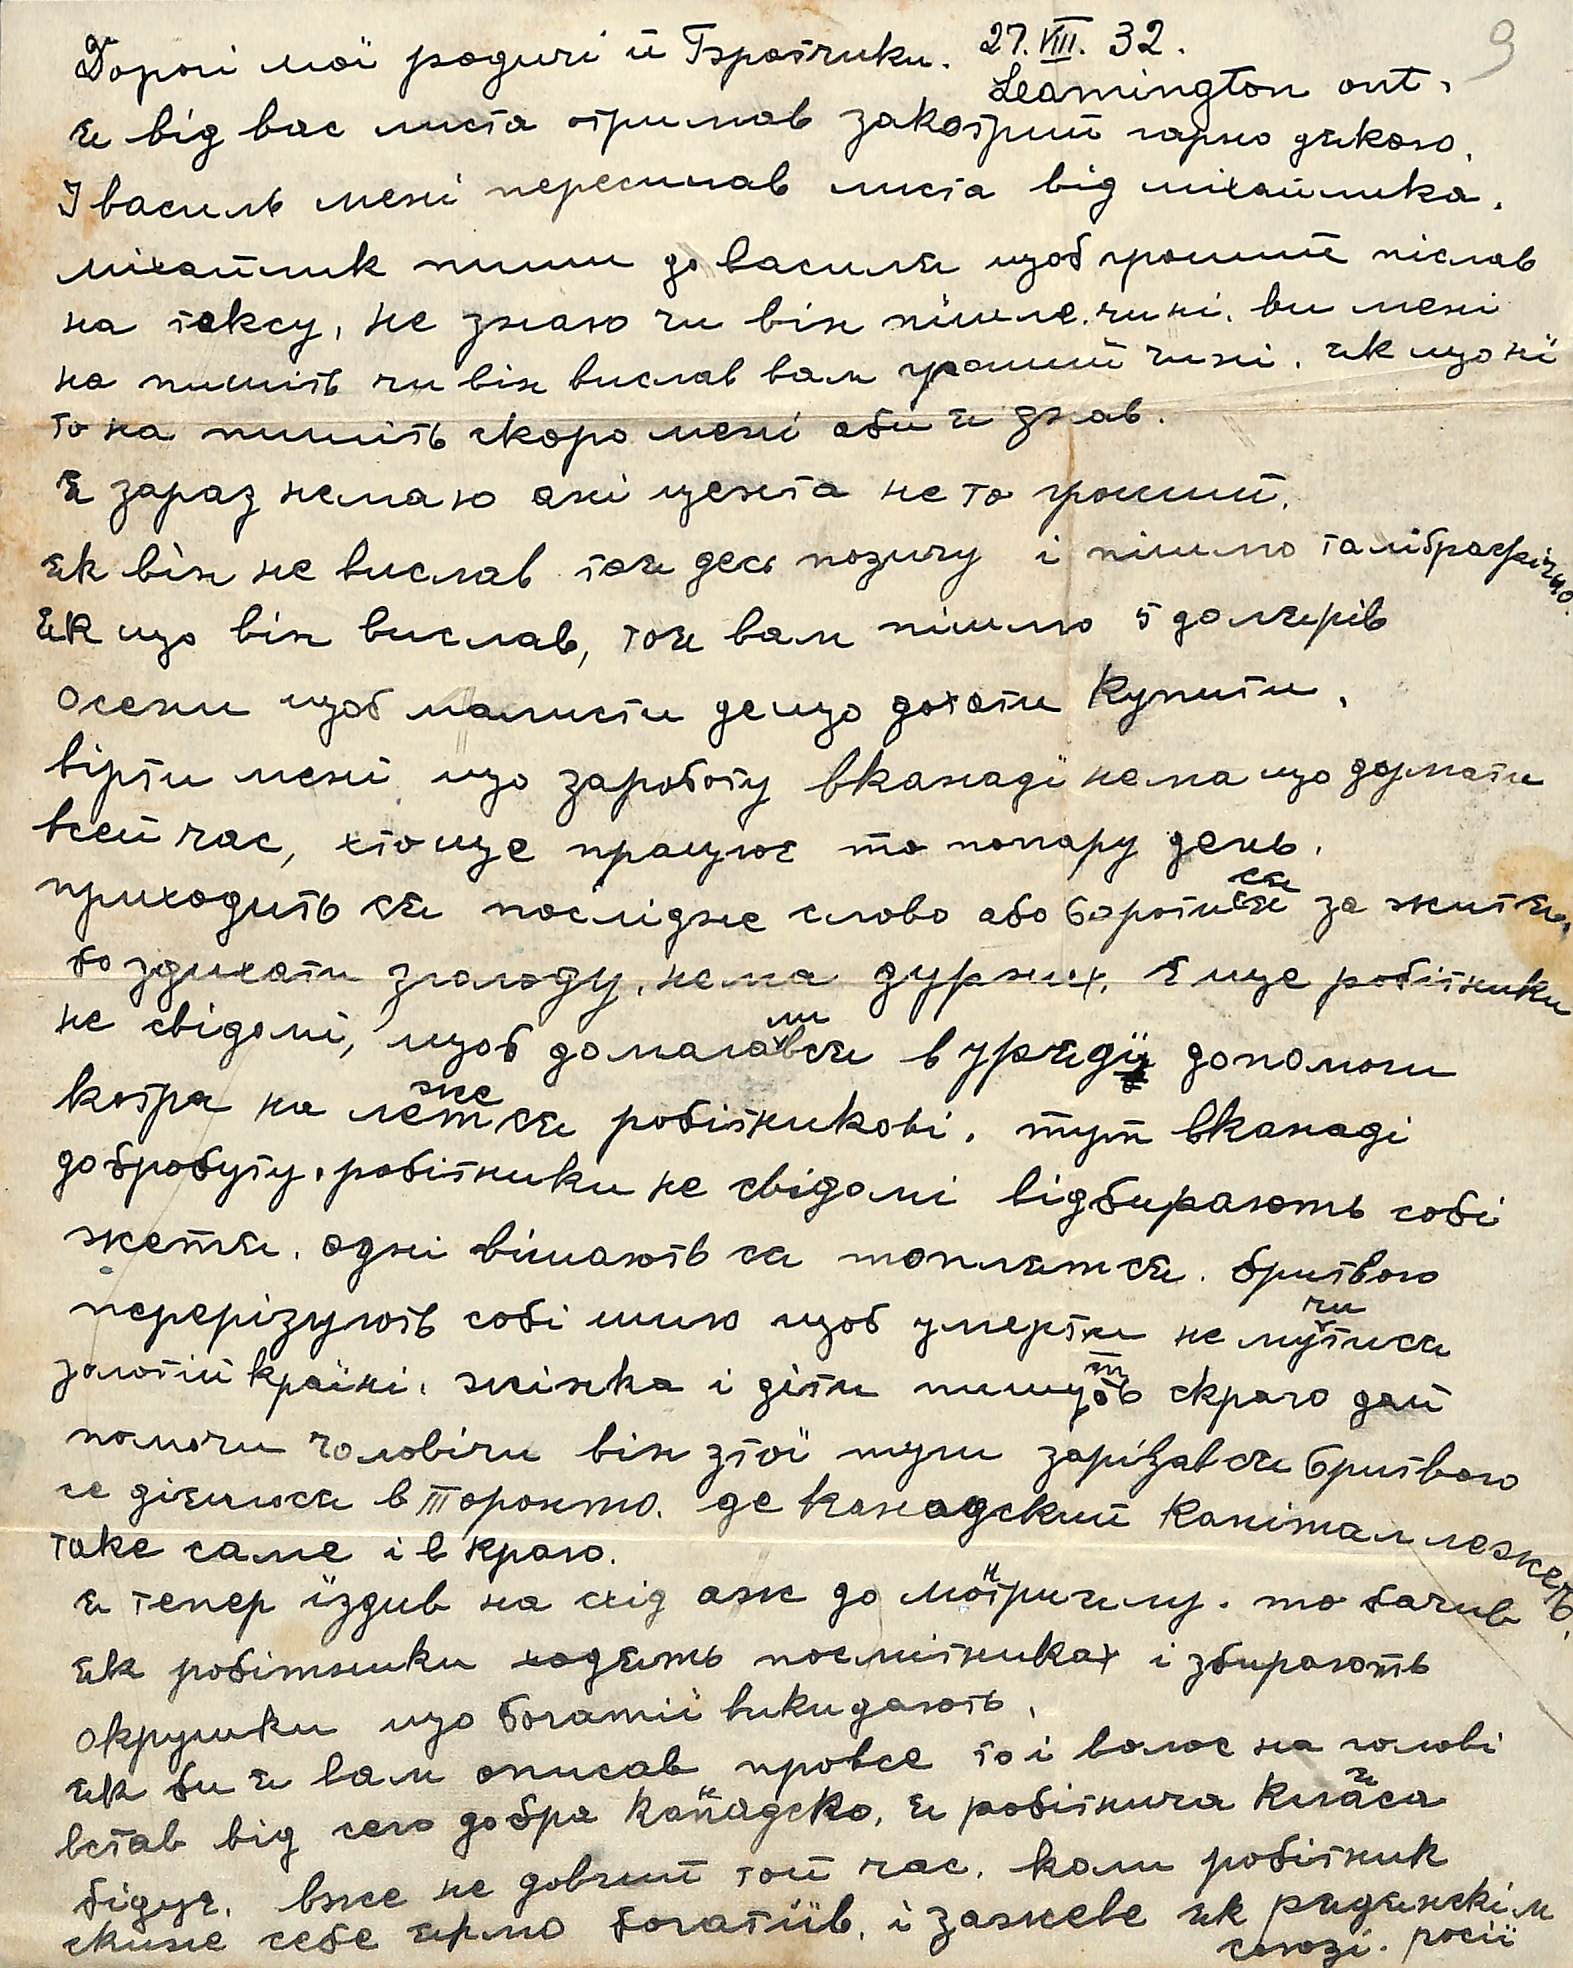 Дорогі мої родичі й Братчики. 27.VIII.32. 9
Leamington ont.
Я від вас листа отримав закотрий гарно дякую.
І василь мені пересилав листа від міхайлика.
міхайлик пиши до василя щоб гроший післав
на таксу, не знаю чи він пішле. чи ні. ви мені
на пишіть чи він вислав вам гроший чи ні. як що нї
то на пишіть скоро мені аби я знав.
Я зараз немаю ані цента не то гроший.
як він не вислав то я десь позичу і пішлю талїбрафічно.
Як що він вислав, то я вам пішлю 5 долярів
осени щоб малисти дещо дохати купити.
вірти мені що зароботу вканадї нема що думати
всей час, хто ще працює то попару день.
приходить ся посліднє слово або боротися за життя,
бо здихати зголоду, нема дурних. Є ще робітники
не свідомі, щоб домагалися в урядї допомоги
котра на лежется робітникові. тут вканаді
добробуту. робітники не свідомі відбирають собі
жетя. одні вішають ся топлятся. бритвою
перерізують собі шию щоб умерти не мучитися
золотій країні. жінка і діти пишуть скраю дай
помочи чоловічи він зтої туги зарізався бритвою
се діялося в Торонто. де канадский капітал лежеть.
таке саме і в краю.
я тепер їздив на схід аж до монтриялу. то бачив
як робітники ходять посмітниках і збирають
окрушки що богатії викидають.
як би я вам описав провсе то і волос на голові
встав від сего добра канадско, я робітнича кляса
бідує. вже не довгий той час. коли робітник
скине себе ярмо богатіїв. і заживе як радянскім
союзі. росії